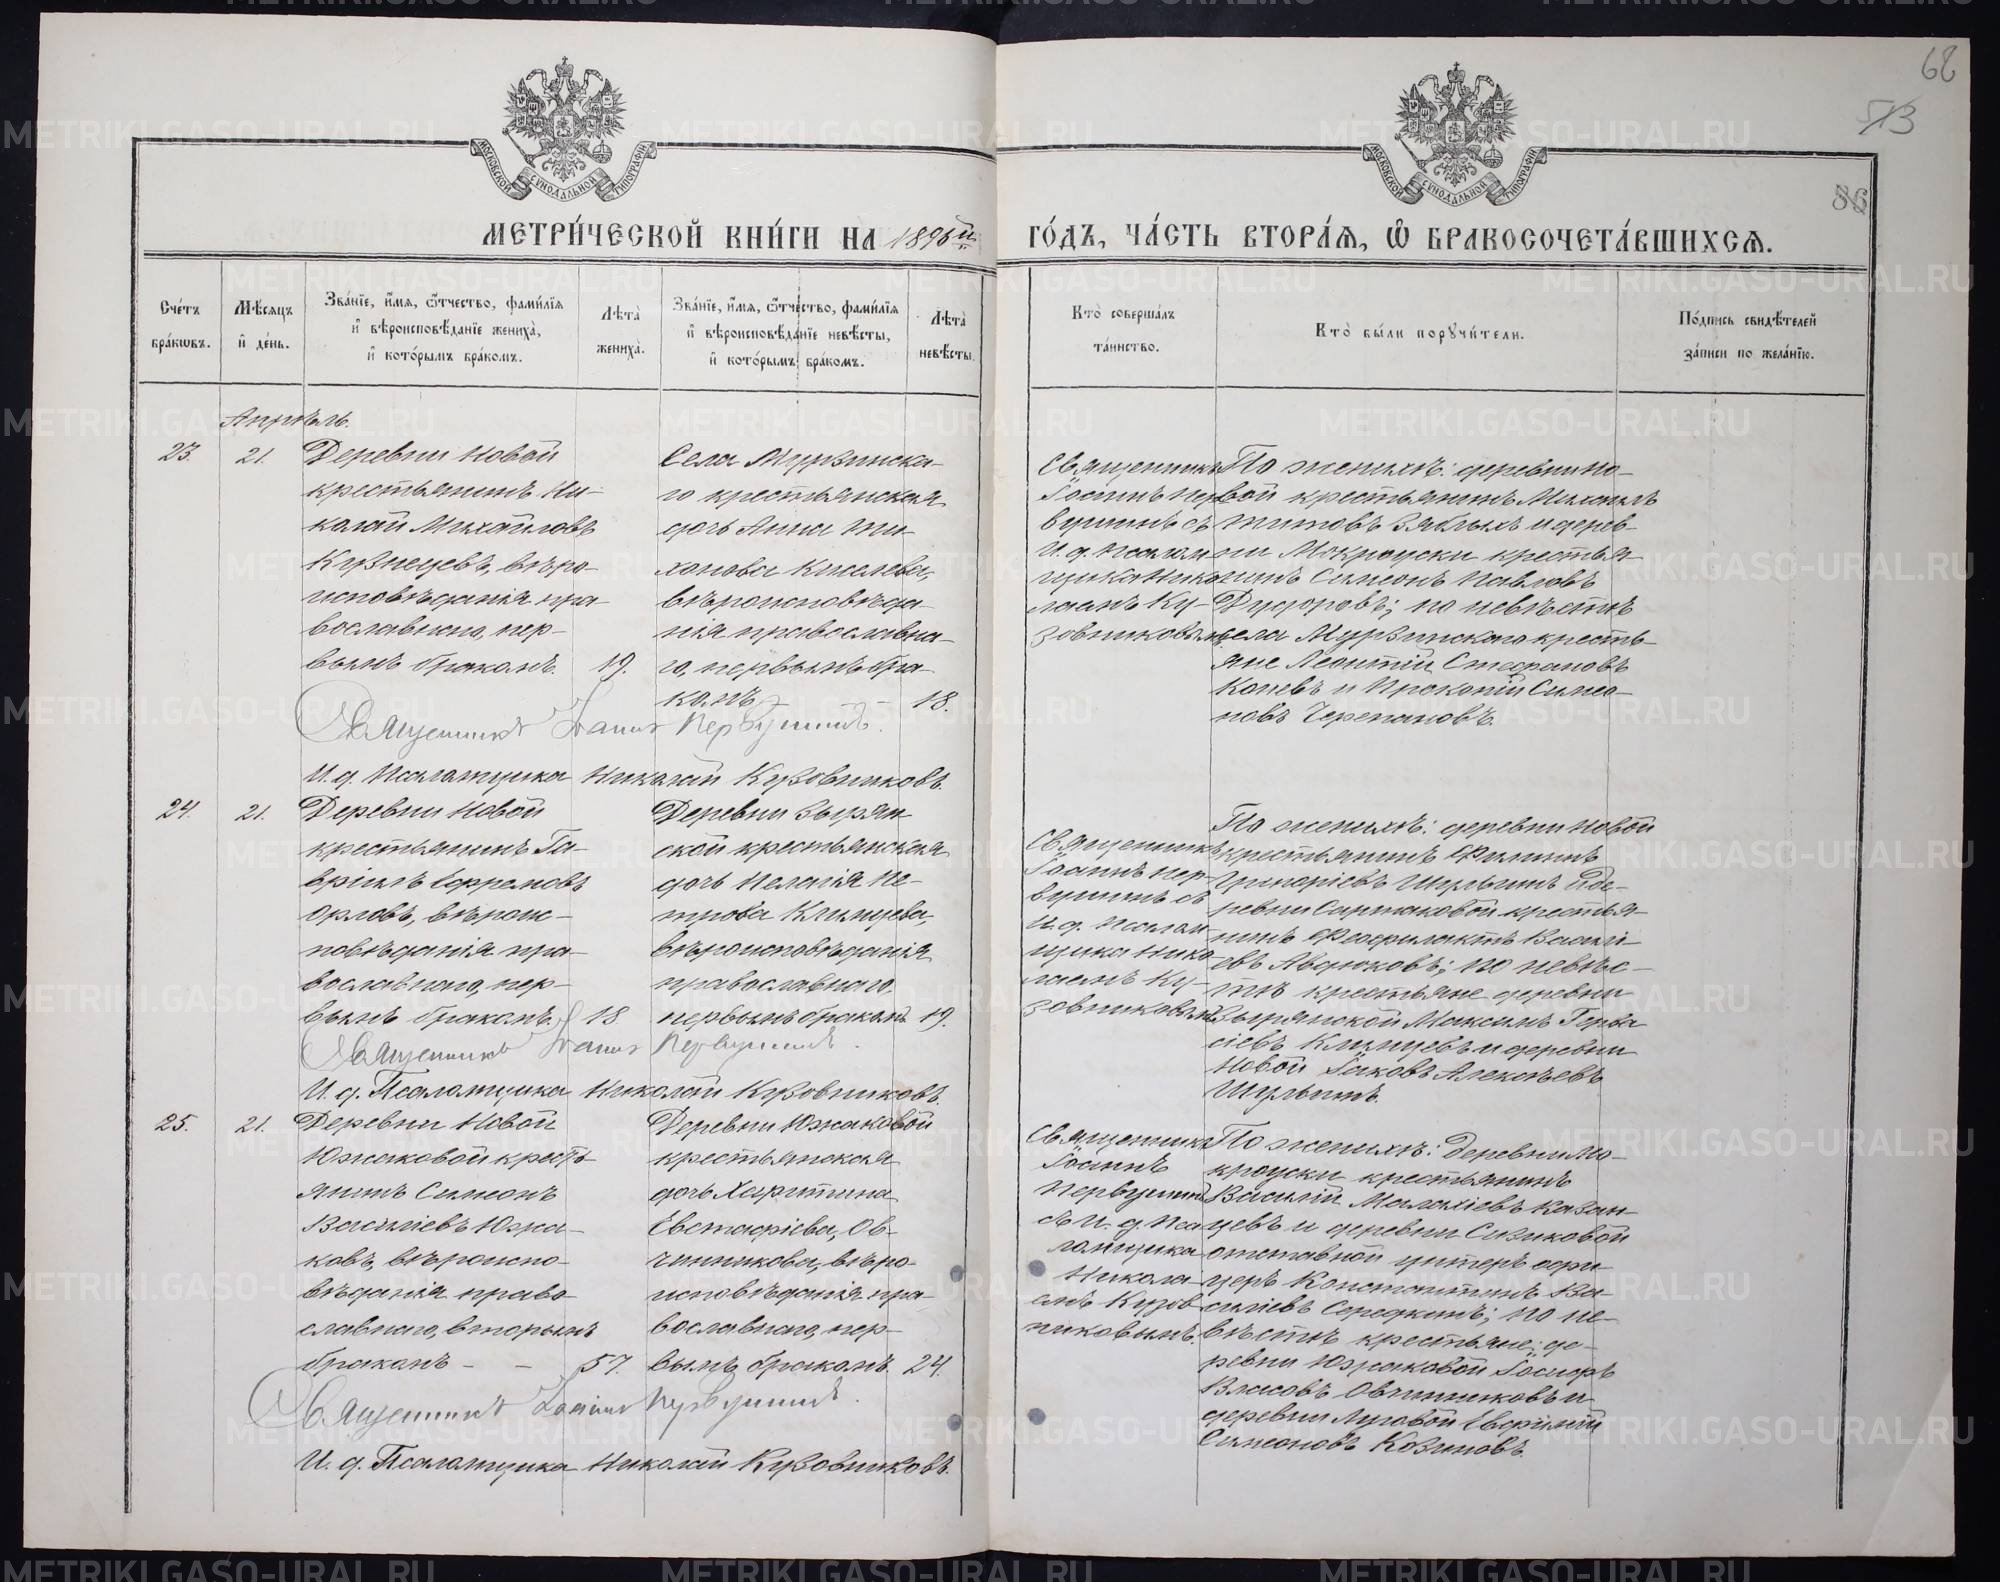 68
513
86
МОСКОВСКОЙ СѴНОДАЛЬНОЙ ТИПОГРАФІИ
МОСКОВСКОЙ СѴНОДАЛЬНОЙ ТИПОГРАФІИ
МЕТРИ́ЧЕСКОЙ КНИ́ГИ НА 1896й
ГО́ДЪ, ЧА́СТЬ ВТОРА́Я, Ѿ БРАКОСОЧЕТА́ВШИХСЯ.
Сче́тъ бра́кωвъ.
Мѣ́сяцъ и҆ де́нь.
Зва́нїе, и҆́мя, ѻ҆́тчество, фами́лїя
и҆ вѣроисповѣ́данїе жениха̀,
и҆ кото́рымъ бра́комъ.
Лѣ́та жениха̀.
Зва́нїе, и҆́мя, ѻ҆́тчество, фами́лїя
и҆ вѣроисповѣ́данїе невѣ́сты,
и҆ кото́рымъ бра́комъ.
Лѣ́та невѣ́сты.
Кто̀ соверша́лъ
та́инство.
Кто̀ бы́ли порꙋчи́тели.
По́дпись свидѣ́телей
за́писи по жела́нїю.
Апрѣль.
23.
21.
Деревни Новой
крестьянинъ Ни-
колай Михайловъ
Кузнецевъ, вѣро-
исповѣданія пра-
вославнаго, пер-
вымъ бракомъ.
19.
Села Мурзинска-
го крестьянская
дочь Анна Ти-
хонова Киселева,
вѣроисповѣда-
нія православна-
го, первымъ бра-
комъ -
18.
Священникъ
Іоаннъ Пер-
вушинъ съ
И. д. Псалом-
щика Нико-
лаемъ Ку-
зовниковымъ
По женихѣ: деревни Но-
вой крестьянинъ Михаилъ
Титовъ Зяблыхъ и дерев-
ни Мокроуски крестья-
нинъ Симеонъ Павловъ
Дудоровъ; по невѣстѣ
села Мурзинскаго кресть-
яне Леонтій Стефановъ
Копевъ и Прокопій Симео-
новъ Черепановъ.
Священникъ Іоаннъ Первушинъ.
И. д. Псаломщика Николай Кузовниковъ.
24.
21.
Деревни Новой
крестьянинъ Га-
вріилъ Ефремовъ
Орловъ, вѣроис-
повѣданія пра-
вославнаго, пер-
вымъ бракомъ.
18.
Деревни Зырян-
ской крестьянская
дочь Пелагія Пе-
трова Клищева,
вѣроисповѣданія
православнаго,
первымъ бракомъ
19.
Священникъ
Іоаннъ Пер-
вушинъ съ
И. д. Псалом-
щика Нико-
лаемъ Ку-
зовниковымъ
По женихѣ: деревни Новой
крестьянинъ Филиппъ
Григоріевъ Шульгинъ и де-
ревни Сартаковой крестья-
нинъ Феофилактъ Василі-
евъ Авдюковъ; по невѣс-
тѣ крестьяне деревни
Зырянской Максимъ Герва
сіевъ Клищевъ и деревни
Новой Іаковъ Алексѣевъ
Шульгинъ.
Священникъ Іоаннъ Первушинъ.
И. д. Псаломщика Николай Кузовниковъ.
25.
21.
Деревни Новой
Южаковой кресть
янинъ Симеонъ
Василіевъ Южа-
ковъ, вѣроиспо-
вѣданія право-
славнаго, вторымъ
бракомъ - -
57.
Деревни Южаковой
крестьянская
дочь Харитина
Евстафіева, Ов-
чинникова, вѣро-
исповѣданія пра-
вославнаго, пер-
вымъ бракомъ.
24.
Священникъ
Іоаннъ
Первушинъ
съ И. д. Пса
ломщика
Никола-
емъ Кузов
никовымъ.
По женихѣ: Деревни Мо-
кроуски крестьянинъ
Василій Малахіевъ Казан-
цевъ и деревни Сизиковой
отставной унтеръ офи-
церъ Константинъ Ва-
силіевъ Середкинъ; по не-
вѣстѣ крестьяне: де-
ревни Южаковой Іосифъ
Власовъ Овчинниковъ и
деревни Луговой Евфимій
Симеоновъ Козиновъ.
Священникъ Іоаннъ Первушинъ.
И. д. Псаломщика Николай Кузовниковъ.
METRIKI.GASO-URAL.RU